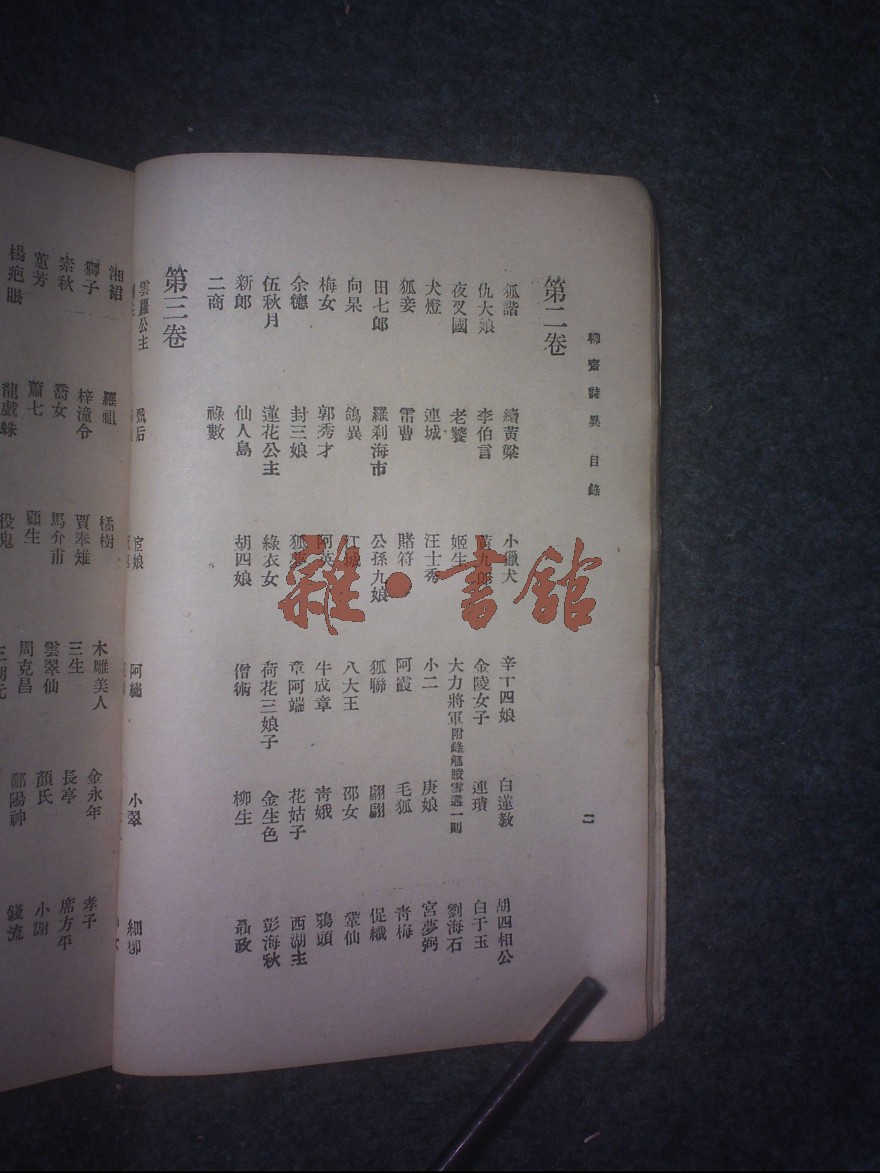 聊齋誌異 目錄
二
第二卷
狐諧 續黃粱 小獵犬 辛十四娘 白蓮教 胡四相公
仇大娘 李伯言 黃九郎 金陵女子 連瑣 白于玉
夜叉國 老饕 姬生 大力將軍附錄觚賸雪遘一則 劉海石
犬燈 連城 汪士秀 小二 庚娘 宮夢弼
狐妾 雷曹 賭符 阿霞 毛狐 青梅
田七郎 羅刹海市 公孫九娘 狐聯 翩翩 促織
向杲 鴿異 江城 八大王 邵女 鞏仙
梅女 郭秀才 阿英 牛成章 青娥 鴉頭
余德 封三娘 狐夢 章阿端 花姑子 西湖主
伍秋月 蓮花公主 綠衣女 荷花三娘子 金生色 彭海秋
新郎 仙人島 胡四娘 僧術 柳生 聶政
二商 祿數
第三卷
雲蘿公主 甄后 宦娘 阿繡 小翠 細柳
湘裙 羅祖 橘樹 木雕美人 金永年 孝子
獅子 梓潼令 賈奉雉 三生 長亭 席方平
素秋 喬女 馬介甫 雲翠仙 顏氏 小謝
蕙芳 蕭七 顧生 周克昌 鄱陽神 錢流
楊疤眼 龍戲蛛 役鬼 三朝元
雜·書館